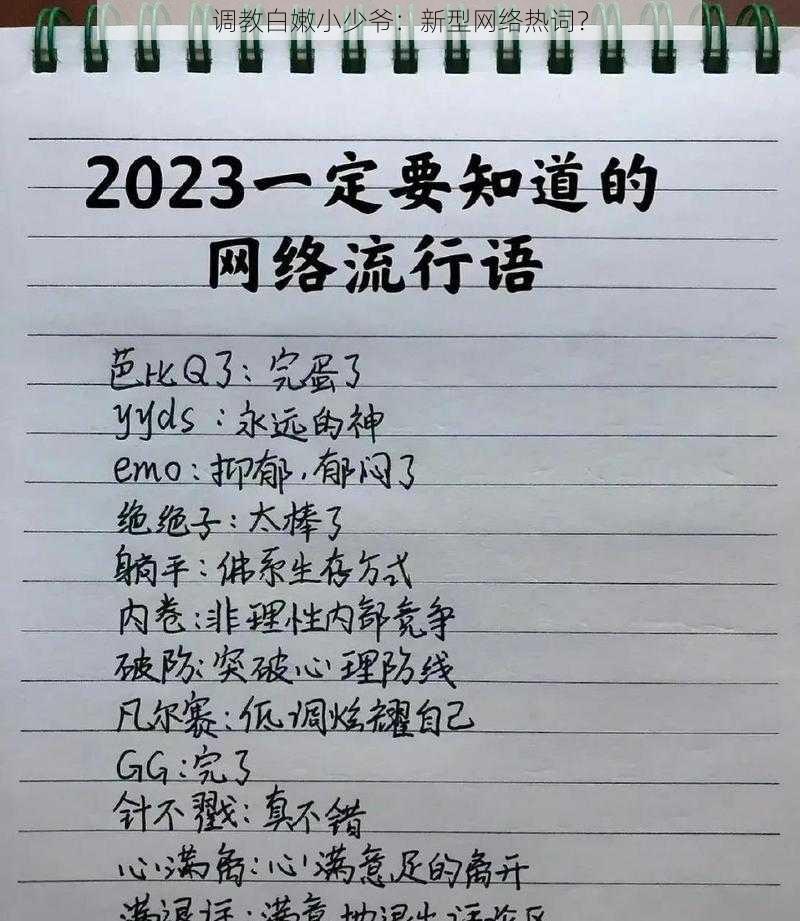 调教白嫩小少爷：新型网络热词？
2023一定要知道的
网络流行语
芭比Q了：完蛋了
yyds：永远的神
emo：抑郁，郁闷了
绝绝子：太棒了
躺平：佛系生存方式
内卷：非理性内部竞争
破防：突破心理防线
凡尔赛：低调炫耀自己
GG：完了
针不戳：真不错
心满离：心满意足的离开
满退坪：满意地退出评论区